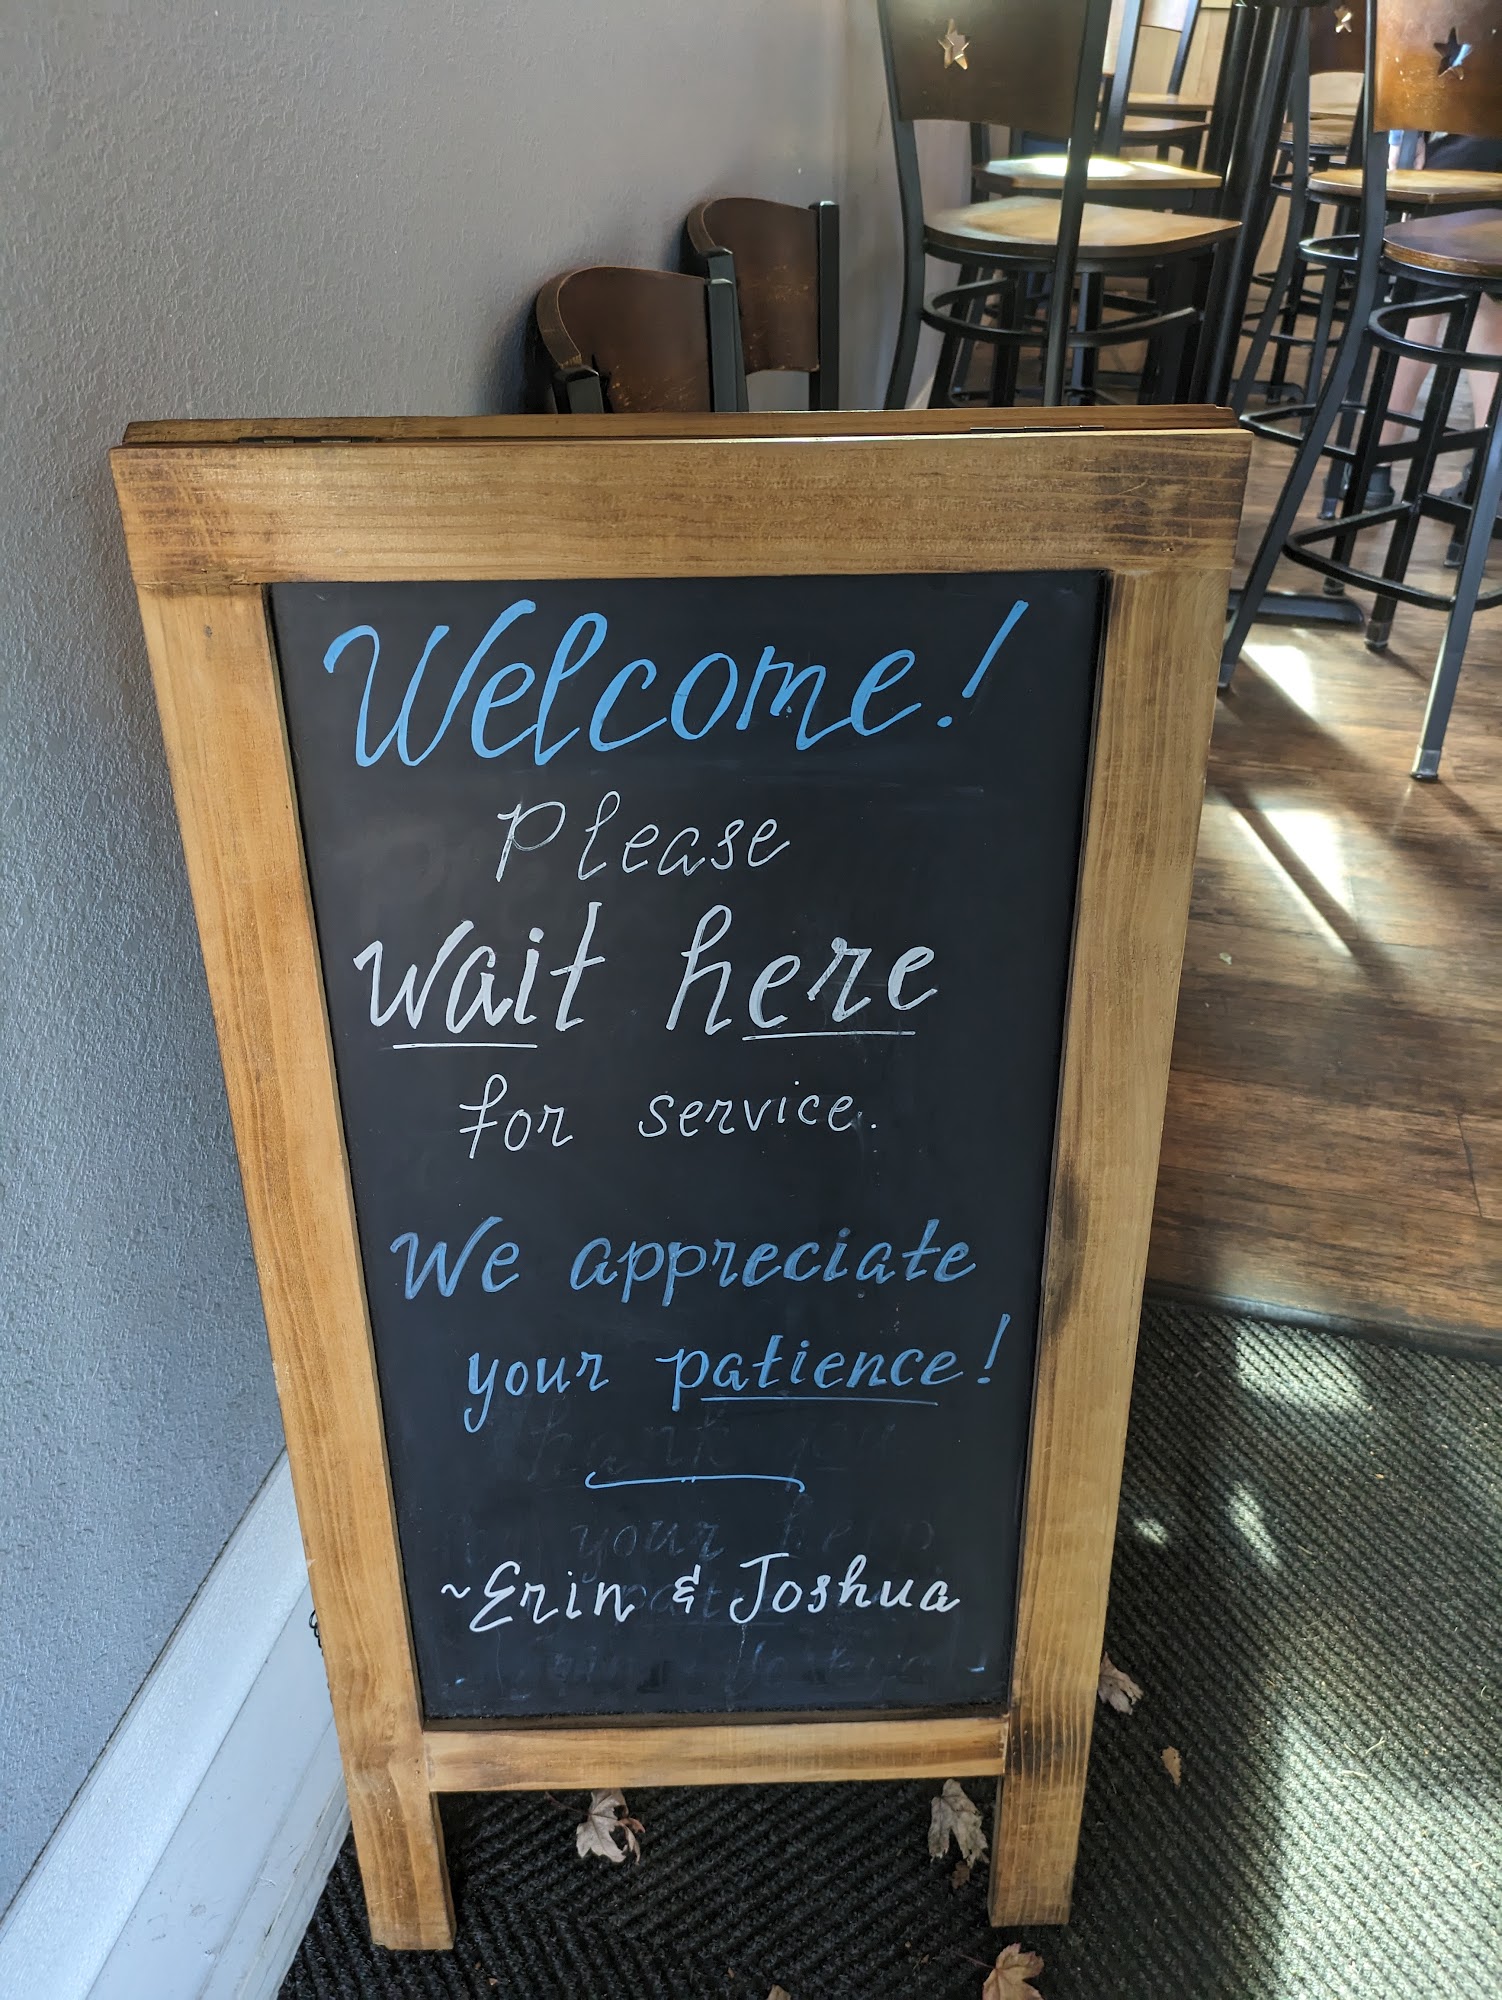 Welcome!
Please
wait here
for service.
We appreciate
your patience!
thank you
your help
~Erin & Joshua